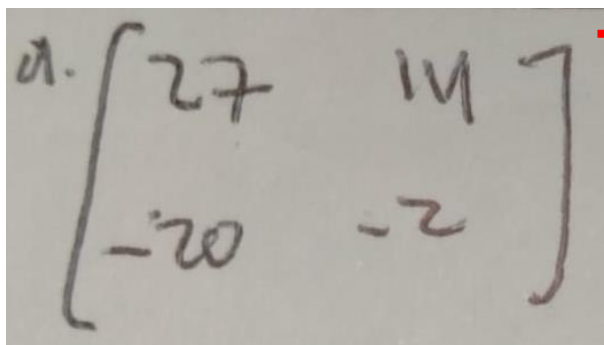 d. [ 27 14
-20 -2 ]